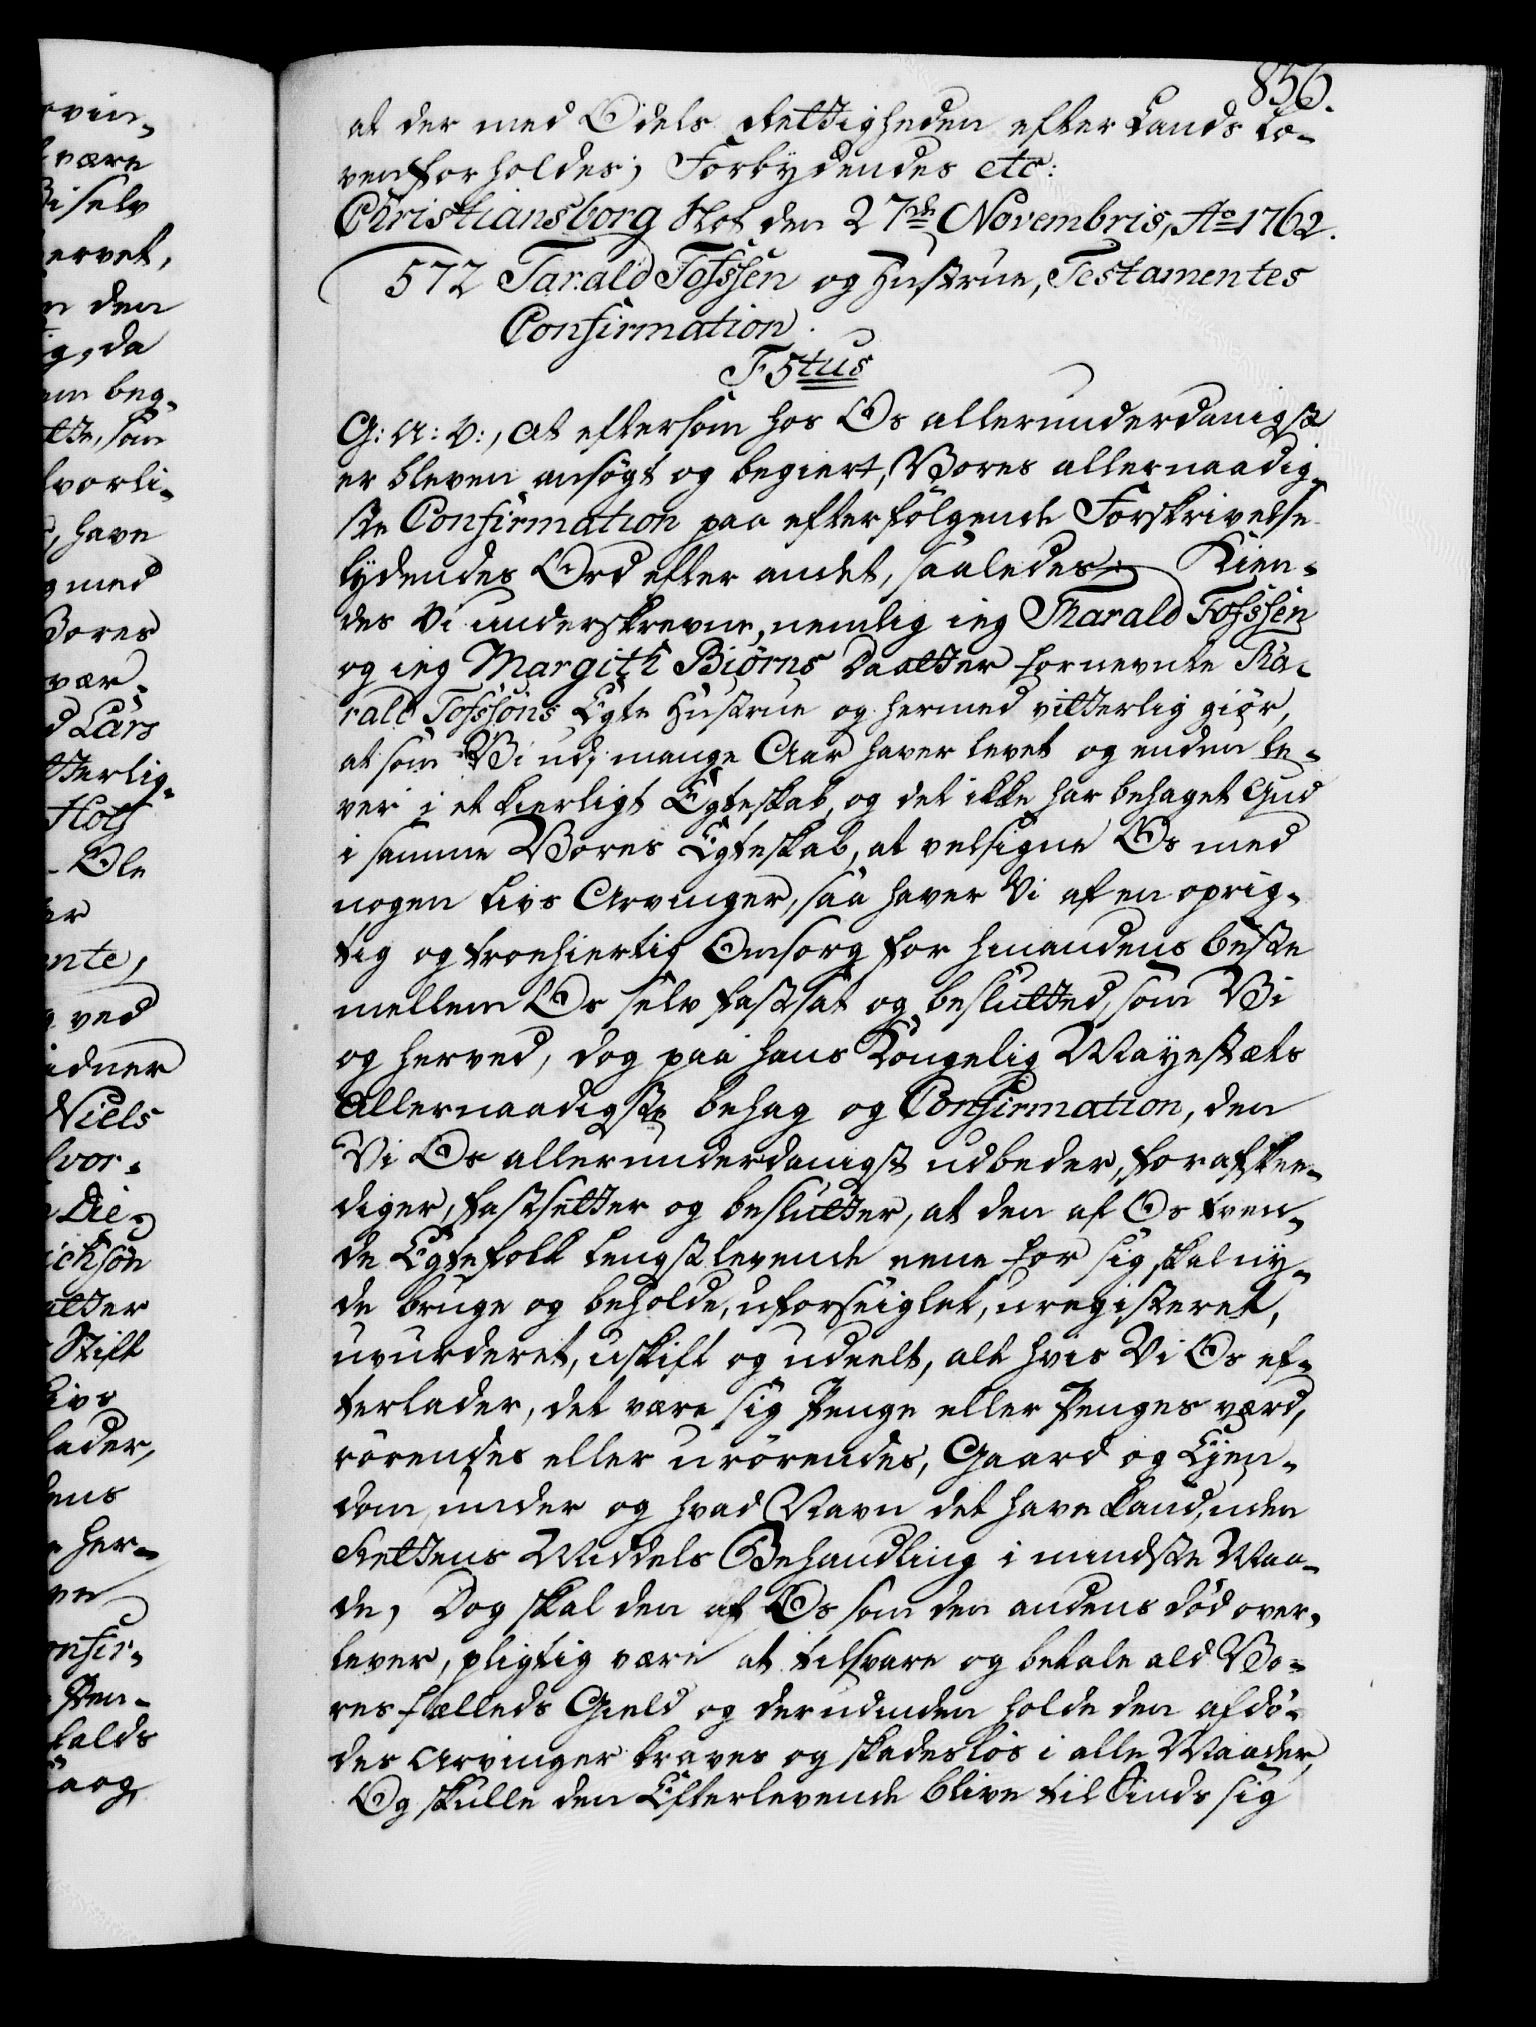 856.
at der med Odels Rettigheden efter Lands Lo-
ven forholdes; Forbydendes etc:
Christiansborg Slot den 27de Novembris, Ao 1762.
572 Tarald Tofssen og Hustrue, Testamentes
Confirmation.
F 5tus
G: A: V:, at eftersom hos Os allerunderdanigst
er bleven ansøgt og begiert, Vores allernaadig-
ste Confirmation paa efterfølgende Forskrivelse
lydendes Ord efter andet, saaledes: Kien-
des Vi underskrevne, nemlig ieg Tharald Tofssen
og ieg Margith Biørns Daatter fornevnte Tha-
rald Tofssøns Egte Hustrue og hermed vitterlig giør,
at som Vi udj mange Aar haver levet og enden le-
ver i et kierligt Egteskab, og det ikke har behaget Gud
i samme Vores Egteskab, at velsigne Os med
nogen Livs Arvinger, saa haver Vi af en oprig-
tig og troehiertig Omsorg for hinandens beste
mellem Os selv fastsat og beslutted, som Vi
og herved, dog paa hans Kongelig Mayestæts
allernaadigste behag og Confirmation, den
Vi Os allerunderdanigst udbeder, forafskee-
diger, fastsetter og beslutter, at den af Os tven-
de Egtefolk lengstlevende eene for sig skal ny-
de bruge og beholde, uforseiglet, uregisteret,
uvurderet, uskift og udeelt, alt hvis Vi Os ef-
terlader, det være sig Penge eller Penges værd,
rørendes eller urørendes, Gaard og Ejen-
dom, under og hvad Navn det have kand, uden
Rettens Middels Behandling i mindste Maa-
de, Dog skal den af Os som den andens død over-
lever, pligtig være at tilsvare og betale ald Vo-
res fælleds Gield og derudinden holde den afdø-
des Arvinger kraves og skadesløs i alle Maader,
Og skulle den Efterlevende blive til Sinds sig